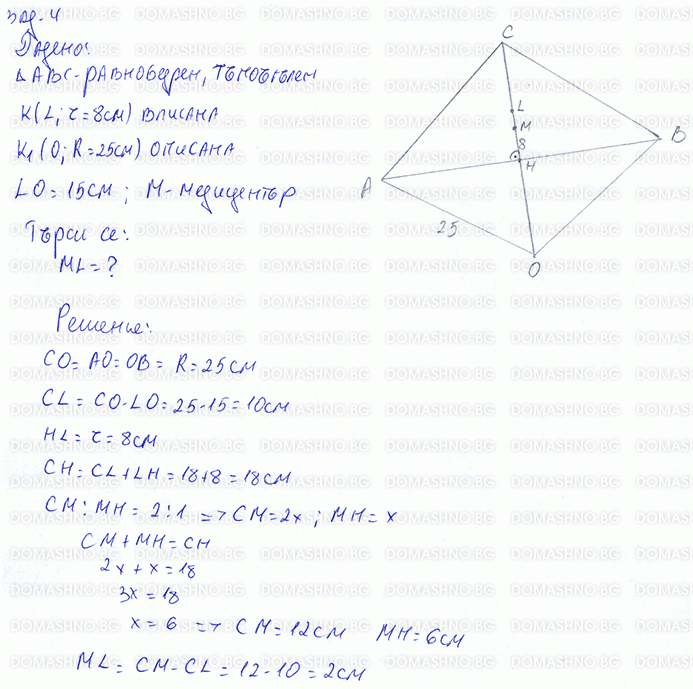 Зад. 4
Дадено:
△ABC - равнобедрен, тъпоъгълен
K(L; r = 8см) вписана
K₁(O; R = 25см) описана
LO = 15см ; M - медицентър
Търси се:
ML = ?
C
L
M
8
H
B
A
25
O
Решение:
CO = AO = OB = R = 25см
CL = CO - LO = 25 - 15 = 10см
HL = r = 8см
CH = CL + LH = 18 + 8 = 18см
CM : MH = 2 : 1 => CM = 2x ; MH = x
CM + MH = CH
2x + x = 18
3x = 18
x = 6 => CM = 12см MH = 6см
ML = CM - CL = 12 - 10 = 2см
DOMASHNO.BG